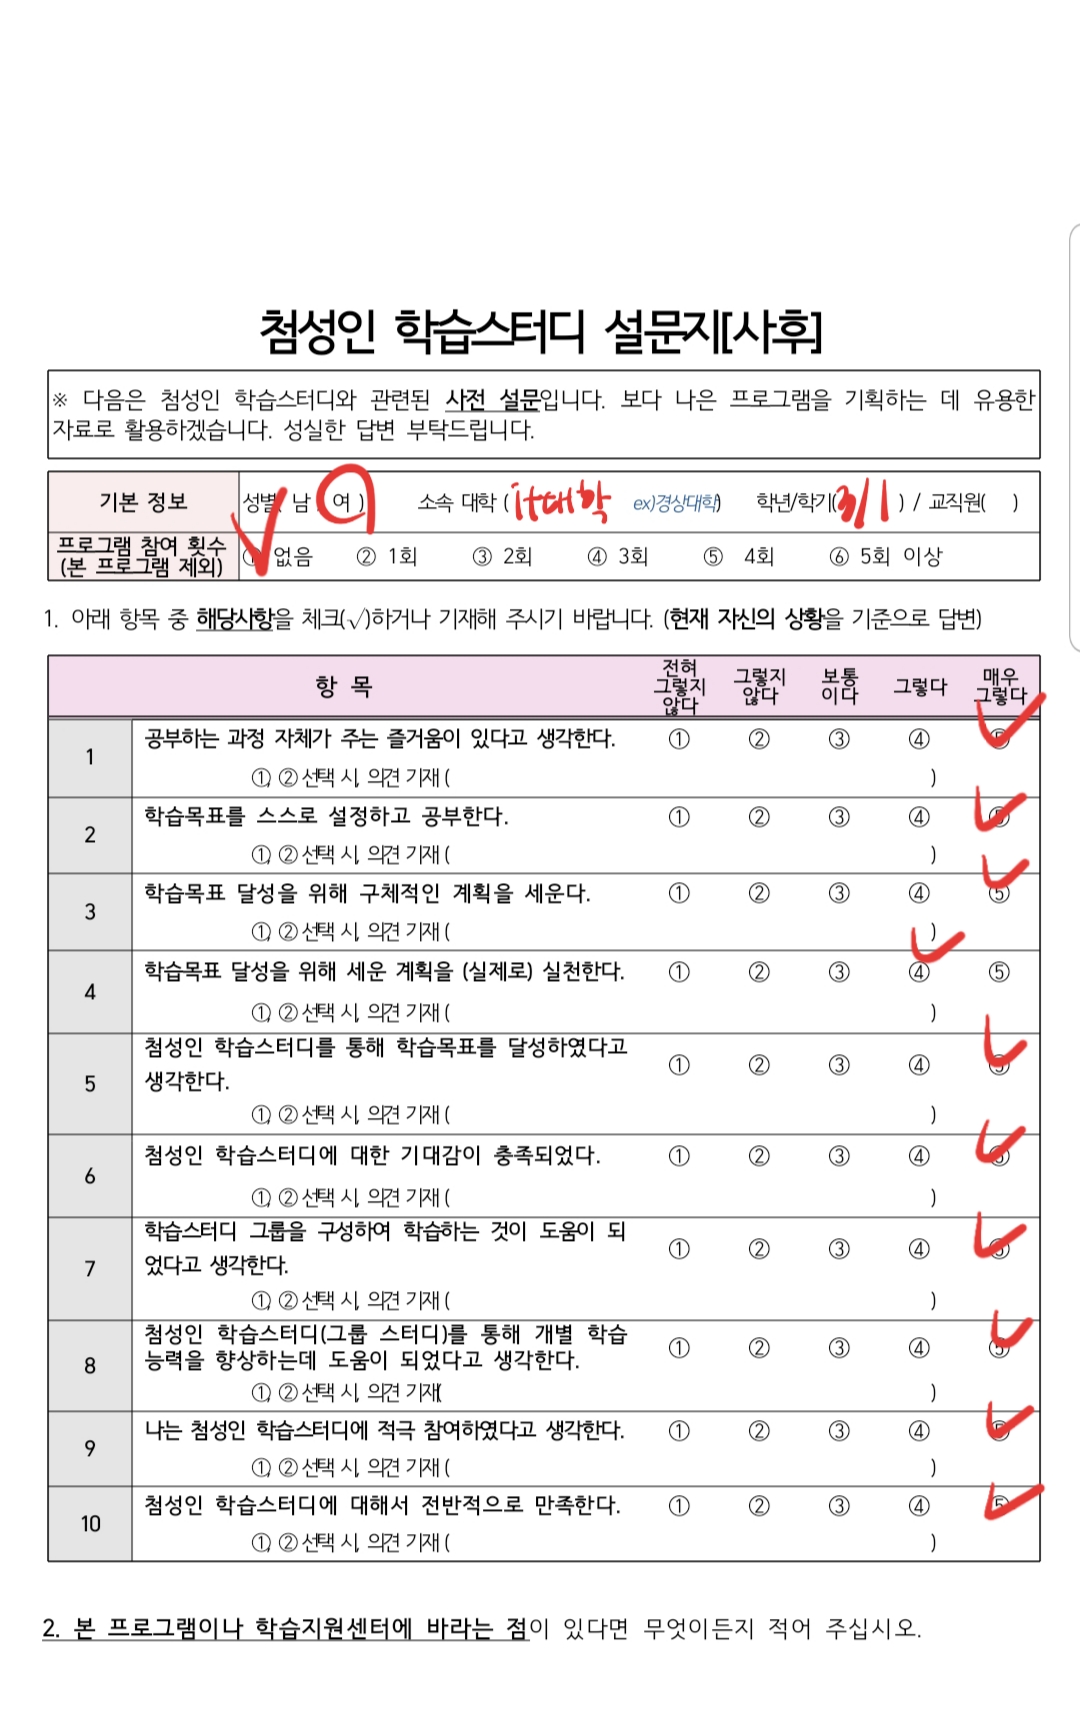 첨성인 학습스터디 설문지[사후]
※ 다음은 첨성인 학습스터디와 관련된 사전 설문입니다. 보다 나은 프로그램을 기획하는 데 유용한
자료로 활용하겠습니다. 성실한 답변 부탁드립니다.
기본 정보 성별( 남 여 ) 소속 대학 ( it대학 ex)경상대학) 학년/학기( 3/1 ) / 교직원( )
프로그램 참여 횟수
(본 프로그램 제외) ① 없음 ② 1회 ③ 2회 ④ 3회 ⑤ 4회 ⑥ 5회 이상
1. 아래 항목 중 해당사항을 체크(√)하거나 기재해 주시기 바랍니다. (현재 자신의 상황을 기준으로 답변)
항 목 전혀 그렇지 않다 그렇지 않다 보통 이다 그렇다 매우 그렇다
1 공부하는 과정 자체가 주는 즐거움이 있다고 생각한다. ① ② ③ ④ ⑤
①, ② 선택 시, 의견 기재 ( )
2 학습목표를 스스로 설정하고 공부한다. ① ② ③ ④ ⑤
①, ② 선택 시, 의견 기재 ( )
3 학습목표 달성을 위해 구체적인 계획을 세운다. ① ② ③ ④ ⑤
①, ② 선택 시, 의견 기재 ( )
4 학습목표 달성을 위해 세운 계획을 (실제로) 실천한다. ① ② ③ ④ ⑤
①, ② 선택 시, 의견 기재 ( )
5 첨성인 학습스터디를 통해 학습목표를 달성하였다고
생각한다. ① ② ③ ④ ⑤
①, ② 선택 시, 의견 기재 ( )
6 첨성인 학습스터디에 대한 기대감이 충족되었다. ① ② ③ ④ ⑤
①, ② 선택 시, 의견 기재 ( )
7 학습스터디 그룹을 구성하여 학습하는 것이 도움이 되
었다고 생각한다. ① ② ③ ④ ⑤
①, ② 선택 시, 의견 기재 ( )
8 첨성인 학습스터디(그룹 스터디)를 통해 개별 학습
능력을 향상하는데 도움이 되었다고 생각한다. ① ② ③ ④ ⑤
①, ② 선택 시, 의견 기재( )
9 나는 첨성인 학습스터디에 적극 참여하였다고 생각한다. ① ② ③ ④ ⑤
①, ② 선택 시, 의견 기재 ( )
10 첨성인 학습스터디에 대해서 전반적으로 만족한다. ① ② ③ ④ ⑤
①, ② 선택 시, 의견 기재 ( )
2. 본 프로그램이나 학습지원센터에 바라는 점이 있다면 무엇이든지 적어 주십시오.